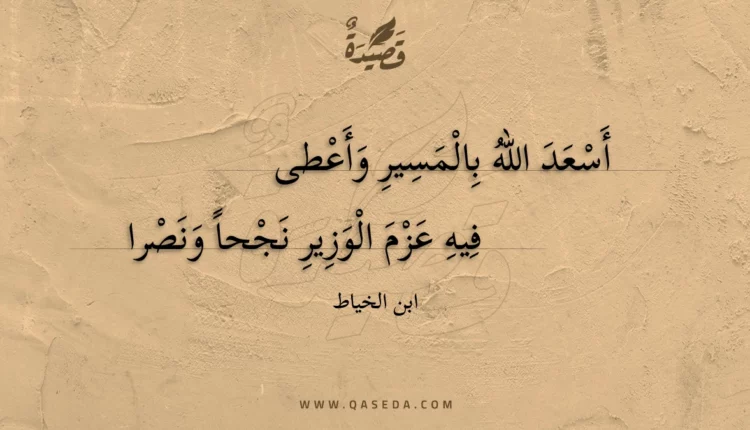 قَصِيدَةٌ
أَسْعَدَ اللَّهُ بِالْمَسِيرِ وَأَعْطى
فِيهِ عَزْمَ الْوَزِيرِ نَجْحاً وَنَصْرا
ابن الخياط
WWW.QASEDA.COM